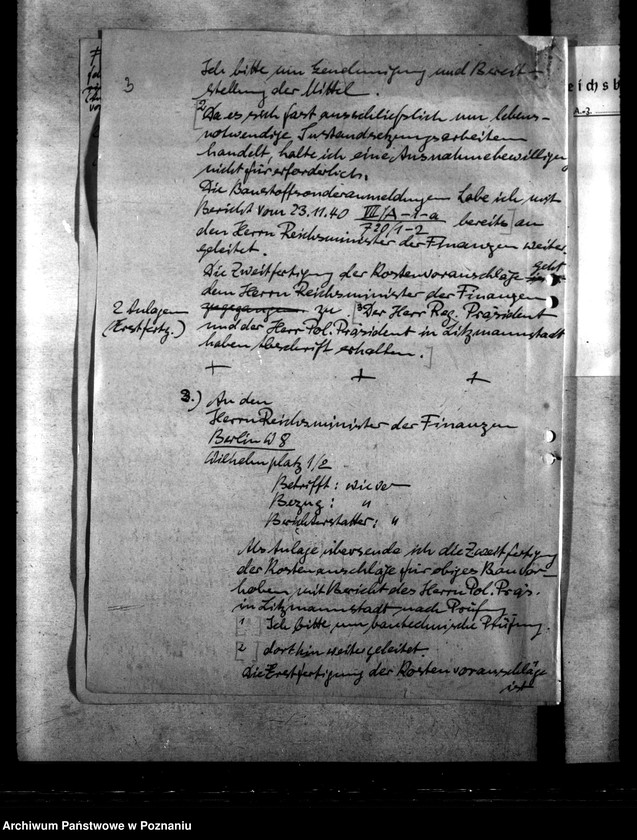 3
Ich bitte um Genehmigung und Bereit-
stellung der Mittel.
[2 Da es sich fast ausschließlich um lebens-
notwendige Instandsetzungsarbeiten
handelt, halte ich eine Ausnahmebewilligung
nicht für erforderlich.
Die Baustoffsonderanmeldungen habe ich mit
Bericht vom 23.11.40 VI/A-1-a bereits] an
720/1-2
den Herrn Reichsminister der Finanzen weiter
geleitet.
Die Zweitfertigung der Kostenvoranschläge geht
dem Herrn Reichsminister der Finanzen
zugegangen zu. [3 Der Herr Reg. Präsident
2 Anlagen
(Erstfertg.)
und der Herr Pol. Präsident in Litzmannstadt
haben Abschrift erhalten.]
+ + +
3.) An den
Herrn Reichsminister der Finanzen
Berlin W 8
Wilhelmplatz 1/2
Betrifft: wie vor
Bezug: "
Berichterstatter: "
Als Anlage übersende ich die Zweitfertigung
der Kostenanschläge für obiges Bauvor-
haben, mit Bericht des Herrn Pol. Präs.
in Litzmannstadt nach Prüfung
1 Ich bitte um bautechnische Prüfung.
2 dorthin weitergeleitet.
die Erstfertigung der Kostenvoranschläge
ist
eichsb
Archiwum Państwowe w Poznaniu